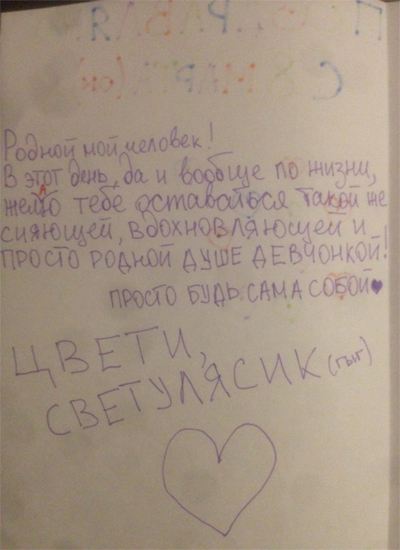 ПОЗДРАВЛЯ
С 8 МАРТА (ок)
Родной мой человек!
В этот день, да и вообще по жизни,
желАю тебе оставаться такой же
сияющей, вдохновляющей и
ПРОСТО РОДНОЙ ДУШЕ ДЕВЧОНКОЙ!
ПРОСТО БУДЬ САМА СОБОЙ
ЦВЕТИ,
СВЕТУЛЯСИК (тыг)